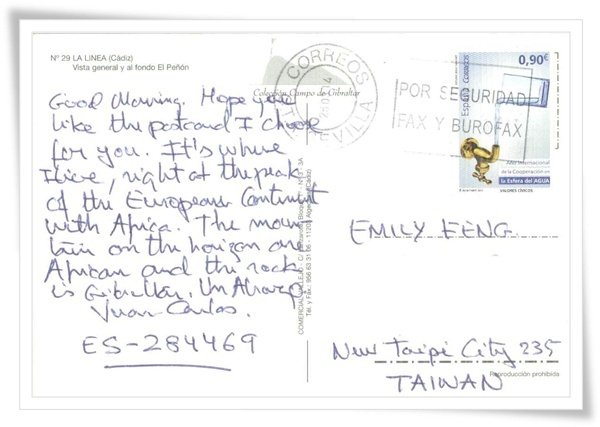 Nº 29 LA LINEA (Cádiz)
Vista general y al fondo El Peñón
Colección Campo de Gibraltar
Good Morning. Hope you
like the postcard I choose
for you. It's where
I live, right at the peak
of the European Continent
with Africa. The moun
tain on the horizon are
African and the rock
is Gibraltar. Un Abrazo
Juan Carlos.
ES-284469
CORREOS
SEVILLA
POR SEGURIDAD
FAX Y BUROFAX
0,90€
España Correos
Año Internacional
de la Cooperación en
la Esfera del AGUA
VALORES CÍVICOS
COMERCIAL
EMILY FENG
New Taipei City 235
TAIWAN
Reproducción prohibida